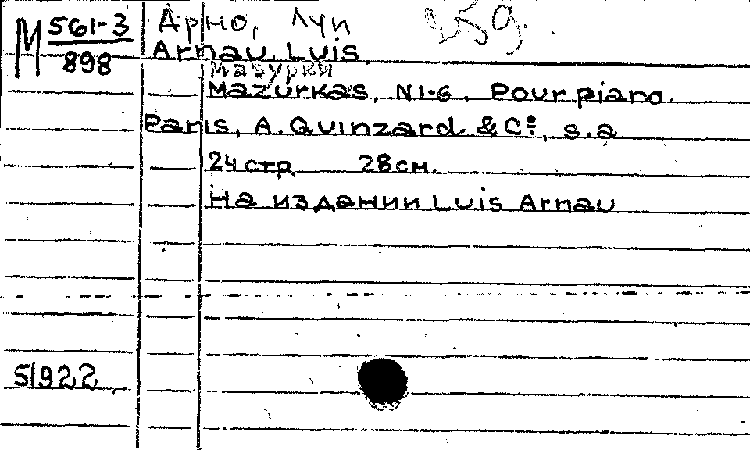 М 561-3
898
Арно, Луи
Arnau, Luis.
Мазурки
Mazurkas, N1-6. Pour piano.
Paris, A. Quinzard & Cº., s.a
24 стр 28 см.
На издании Luis Arnau
51922